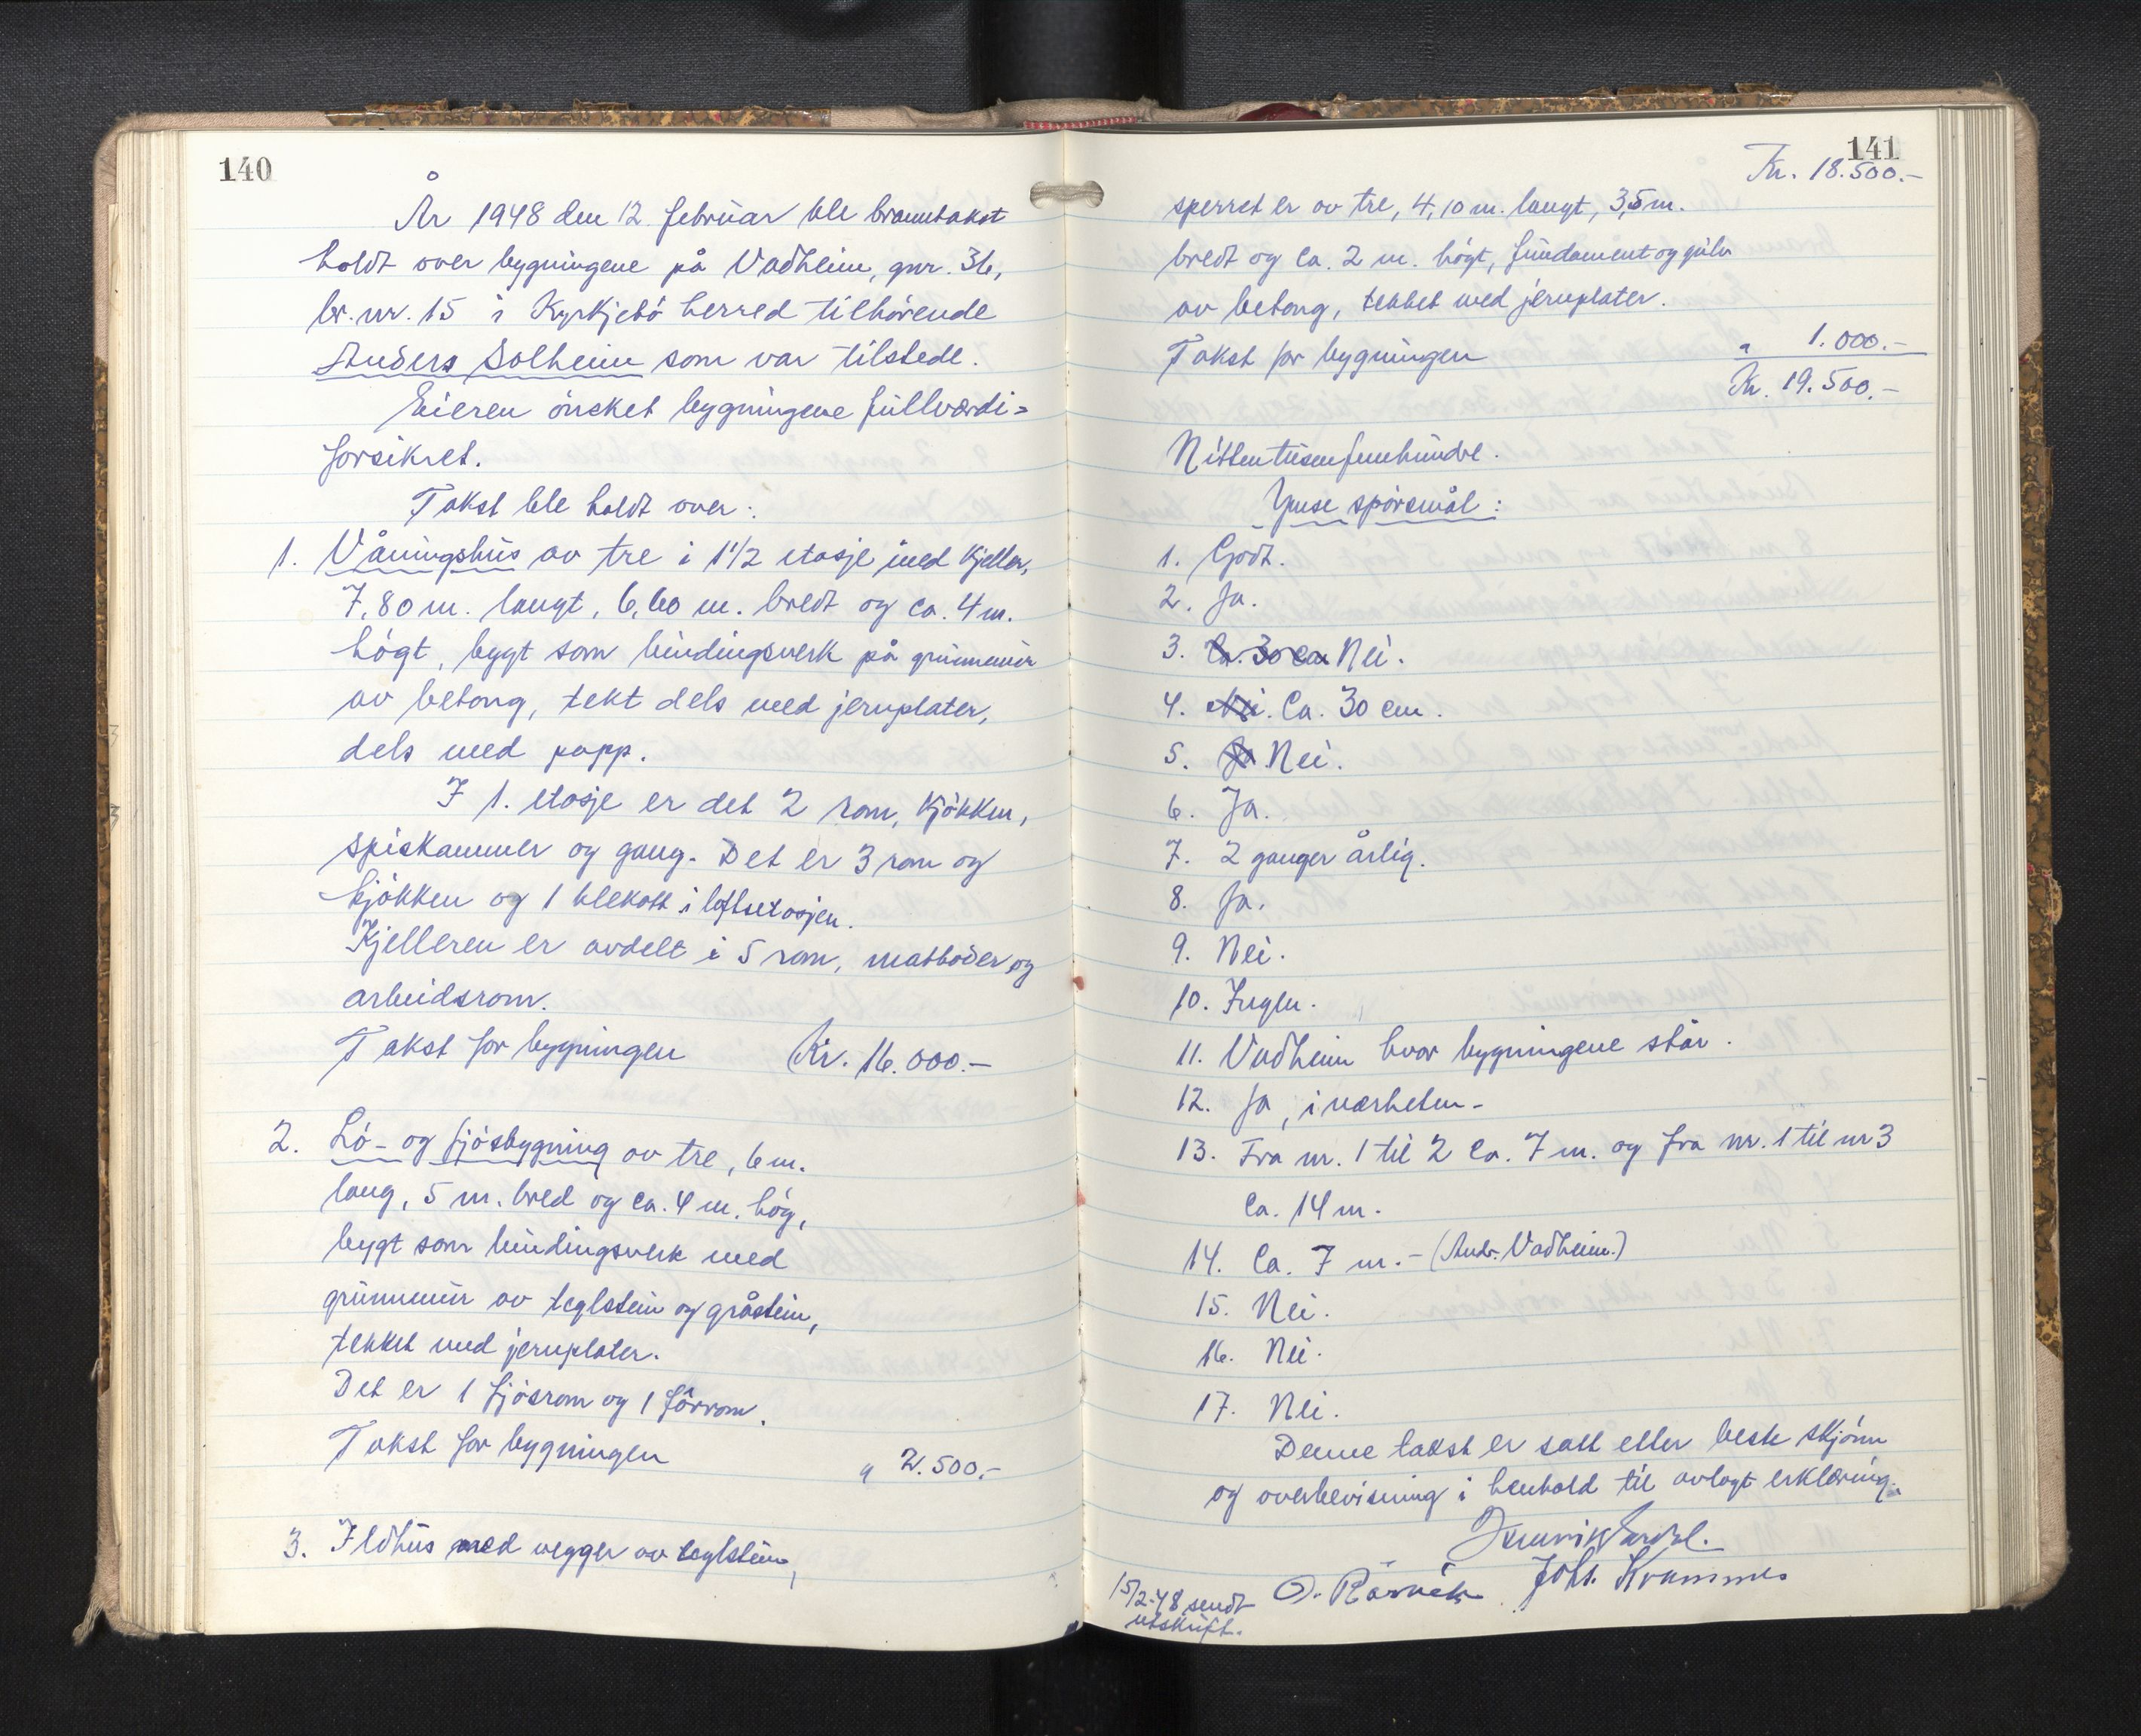 140
År 1948 den 12. februar ble branntakst
holdt over bygningene på Vadheim, gnr. 36,
br. nr. 15 i Kyrkjebö herred tilhörende
Anders Solheim som var tilstede.
Eieren önsket bygningene fullverdi=
forsikret.
Takst ble holdt over:
1. Våningshus av tre i 1 1/2 etasje med kjeller,
7,80 m. langt, 6,60 m. bredt og ca. 4 m.
högt, bygt som bindingsverk på grunnmur
av betong, tekt dels med jernplater,
dels med papp.
I 1. etasje er det 2 rom, kjökken,
spiskammer og gang. Det er 3 rom og
kjökken og 1 klekott i loftsetasjen.
Kjelleren er avdelt i 5 rom, matboder og
arbeidsrom.
Takst for bygningen Kr. 16.000.-
2. Lö- og fjösbygning av tre, 6 m.
lang, 5 m. bred og ca. 4 m. hög,
bygt som bindingsverk med
grunnmur av teglstein og gråstein,
tekket med jernplater.
Det er 1 fjösrom og 1 fôrrom.
Takst for bygningen " 2.500.-
3. Ildhus med vegger av teglstein,
141
Kr. 18.500.-
sperret er av tre, 4,10 m. langt, 3,5 m.
bredt og ca. 2 m. högt, fundament og gulv
av betong, tekket med jernplater.
Takst for bygningen " 1.000.-
Kr. 19.500.-
Nittentusenfemhundre.
Ymse spörsmål:
1. Godt.
2. Ja.
3. Ca. 30 cm Nei.
4. Nei. Ca. 30 cm.
5. Ja Nei.
6. Ja.
7. 2 ganger årlig.
8. Ja.
9. Nei.
10. Ingen.
11. Vadheim hvor bygningene står.
12. Ja, i nærheten-
13. Fra nr. 1 til 2 ca. 7 m. og fra nr. 1 til nr 3
ca. 14 m.
14. Ca. 7 m. - (Andr. Vadheim.)
15. Nei.
16. Nei.
17. Nei.
Denne takst er satt etter beste skjönn
og overbevisning i henhold til avlagt erklæring.
Johs. Kvammes
O.
15/2-48 sendt
utskrift.